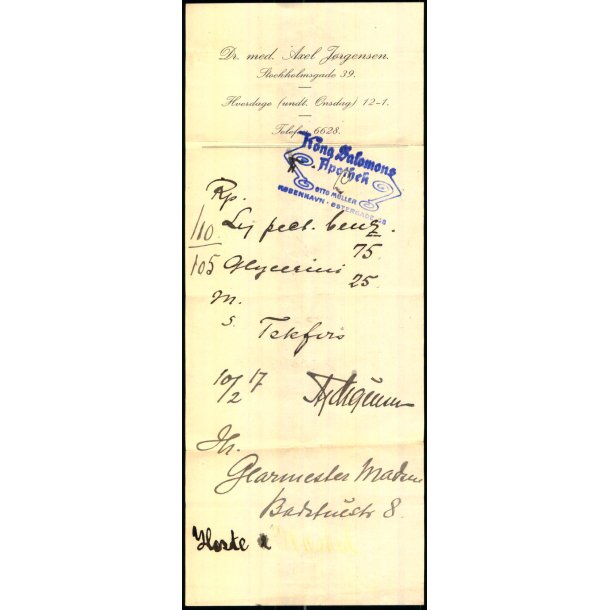 Dr. med. Axel Jørgensen.
Stockholmsgade 39.
Hverdage (undt. Onsdag) 12-1.
Telefon 6628.
Kong Salomons
Apothek
OTTO MÜLLER
KØBENHAVN · ØSTERGADE
Rp.
Ly pect. benz.
75
105 Glycerini
25
M.
S.
10/2 17
Glarmester Madsen
Badstuestr 8.
Hoste